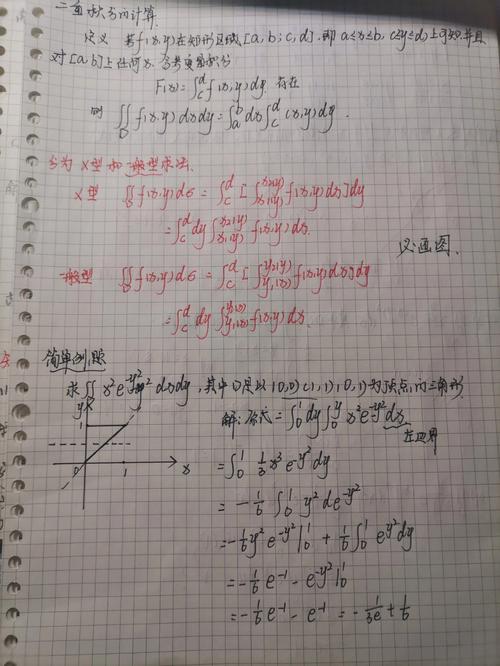 二重积分的计算
定义 若f(x,y)在矩形区域[a,b;c,d],即 a≤x≤b, c≤y≤d)上可知,并且
对[a,b]上任何x,含参变量积分
F(x)=∫_c^d f(x,y)dy 存在
则 ∬_D f(x,y)dxdy=∫_a^b dx∫_c^d (x,y)dy
分为 X型 和 一般型求法.
X型 ∬_D f(x,y)dσ = ∫_c^d [∫_{x1(y)}^{x2(y)} f(x,y)dx]dy
=∫_c^d dy∫_{x1(y)}^{x2(y)} f(x,y)dx.
必画图.
一般型 ∬_D f(x,y)dσ = ∫_c^d [∫_{y1(x)}^{y2(y)} f(x,y)dx]dy
=∫_c^d dy∫_{y1(x)}^{y2(x)} f(x,y)dx.
简单例题
求∬x²e^{-y²}dxdy,其中D是以(0,0)(1,1)(0,1)为顶点的三角形
y
1
0
1
x
解:原式=∫_0^1 dy∫_0^y x²e^{-y²}dx
=∫_0^1 1/3 x³e^{-y²}dy
= -1/6 ∫_0^1 y²de^{-y²}
= -1/6 y²e^{-y²}|_0^1 + 1/6∫_0^1 e^{y²}dy
= -1/6 e^{-1} - e^{-y²}|_0^1
= -1/6 e^{-1} - e^{-1} = -1/3e + 1/6